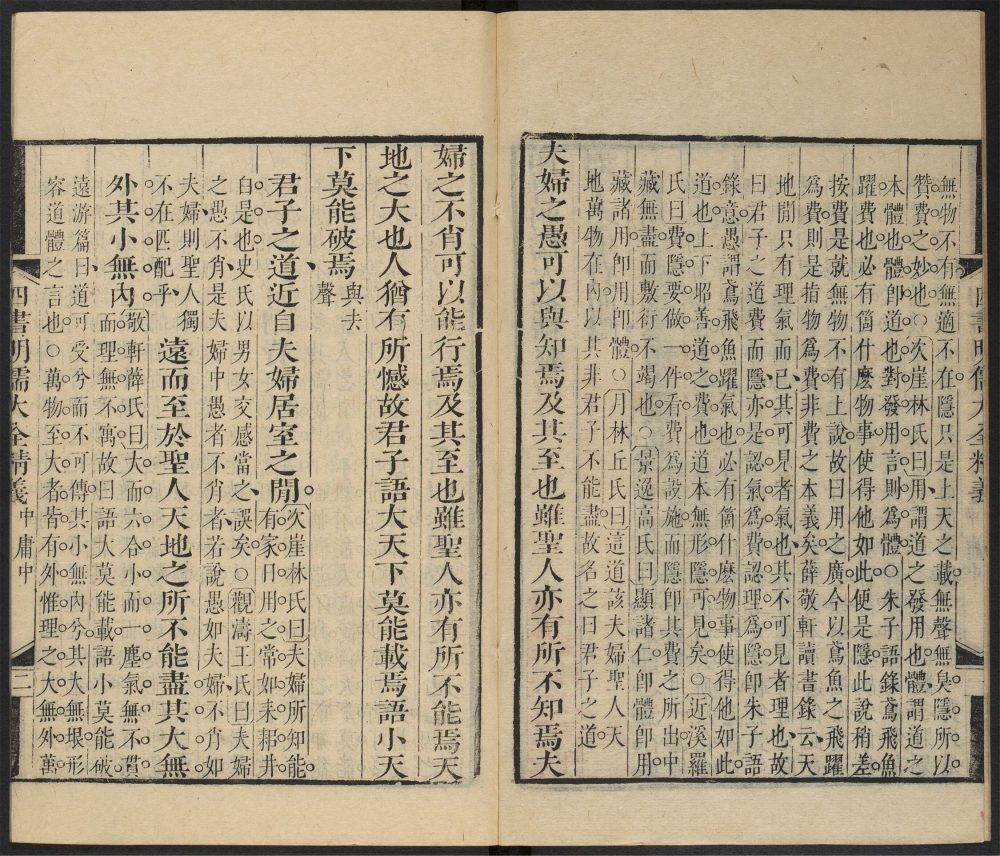 無物不有無適不在隱只是上天之載無聲無臭隱所以
贊費之妙也○次崖林氏曰用謂道之發用也體謂道之
本體也體卽道也對發用言則爲體○朱子語錄鳶飛魚
躍費也必有箇什麼物事使得他如此便是隱此說稍差
按費是就無物不有上說故曰用之廣今以鳶魚之飛躍
爲費則是指物爲費非費之本義矣薛敬軒讀書錄云天
地閒只有理氣而已其可見者氣也其不可見者理也故
曰君子之道費而隱亦是認氣爲費認理爲隱卽朱子語
錄意愚謂鳶飛魚躍氣也必有箇什麼物事使得他如此
道也上下昭善道之費也道本無形隱可見矣○近溪羅
氏曰費隱要做一件看費爲設施而隱卽其費之所出中
藏無盡而敷行不竭也○景逸高氏曰顯諸仁卽體卽用
藏諸用卽用卽體○月林丘氏曰這道該夫婦聖人天
地萬物在內以其非君子不能盡故名之曰君子之道
夫婦之愚可以與知焉及其至也雖聖人亦有所不知焉夫
四書明儒大全精義
婦之不肖可以能行焉及其至也雖聖人亦有所不能焉天
地之大也人猶有所憾故君子語大天下莫能載焉語小天
下莫能破焉 與去聲
君子之道近自夫婦居室之閒 次崖林氏曰夫婦所知能有家日用之常如耒耜井
臼是也史氏以男女交感當之誤矣○觀濤王氏曰夫婦
之愚不肖是夫婦中愚者不肖者若說愚如夫婦不肖如
夫婦則聖人獨不在匹配乎 遠而至於聖人天地之所不能盡其大無
外其小無內 敬軒薛氏曰大而六合小而一塵氣無不貫而理無不寓故曰語大莫能載語小莫能破
遠游篇曰道可受兮而不可傳其小無內兮其大無垠形
容道體之言也○萬物至大者皆有外惟理之大無外萬
四書明儒大全精義 中庸中 二